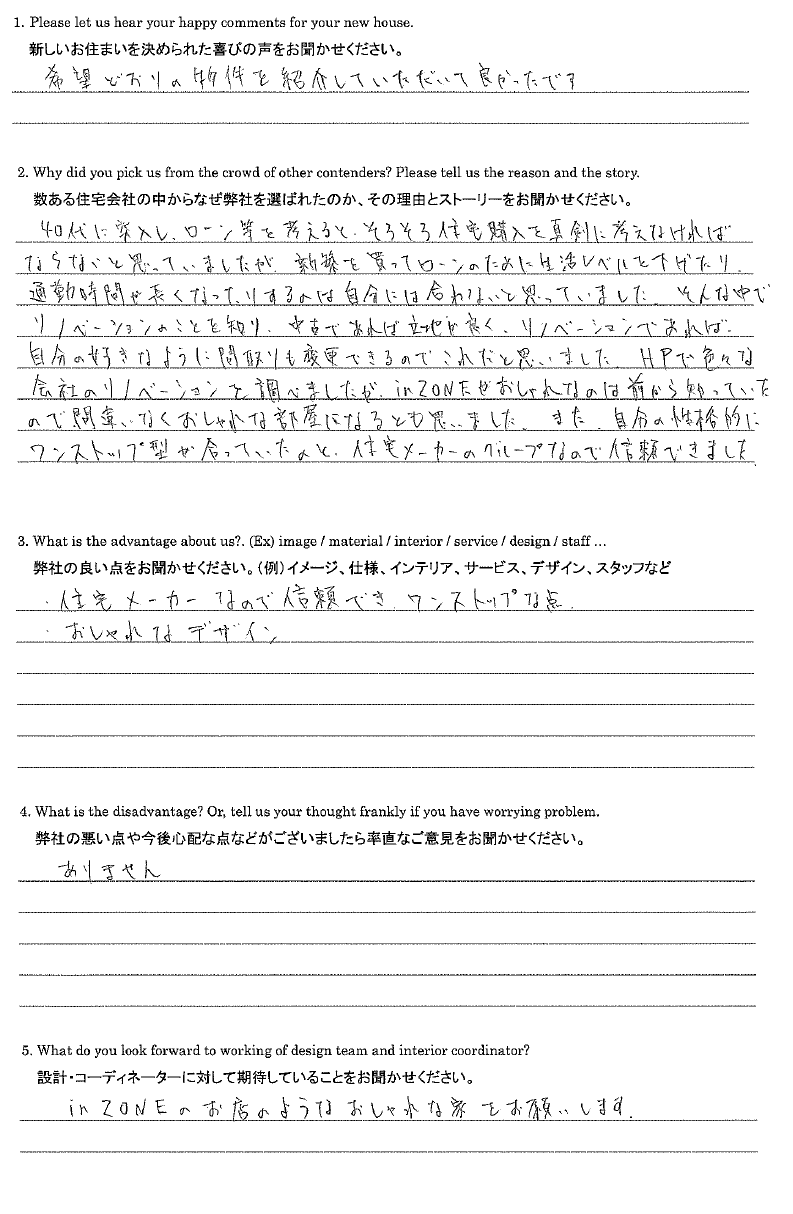 1. Please let us hear your happy comments for your new house.
新しいお住まいを決められた喜びの声をお聞かせください。
希望どおりの物件を紹介していただいて良かったです
2. Why did you pick us from the crowd of other contenders? Please tell us the reason and the story.
数ある住宅会社の中からなぜ弊社を選ばれたのか、その理由とストーリーをお聞かせください。
40代に突入し、ローン等を考えると、そろそろ住宅購入を真剣に考えなければ
ならないと思っていましたが、新築を買ってローンのために生活レベルを下げたり、
通勤時間が長くなったりするのは自分には合わないと思っていました。そんな中で
リノベーションのことを知り、中古であれば立地が良く、リノベーションであれば、
自分の好きなように間取りも変更できるのでこれだと思いました。HPで色々な
会社のリノベーションを調べましたが、inZONEがおしゃれなのは前から知っていた
ので間違いなくおしゃれな部屋になるとも思いました。また、自分の性格的に
ワンストップ型が合っていたのと、住宅メーカーのグループなので信頼できました
3. What is the advantage about us?. (Ex) image / material / interior / service / design / staff ...
弊社の良い点をお聞かせください。（例）イメージ、仕様、インテリア、サービス、デザイン、スタッフなど
・住宅メーカーなので信頼でき、ワンストップな点。
・おしゃれなデザイン
4. What is the disadvantage? Or, tell us your thought frankly if you have worrying problem.
弊社の悪い点や今後心配な点などがございましたら率直なご意見をお聞かせください。
ありません
5. What do you look forward to working of design team and interior coordinator?
設計・コーディネーターに対して期待していることをお聞かせください。
in ZONEのお店のようなおしゃれな家をお願いします。